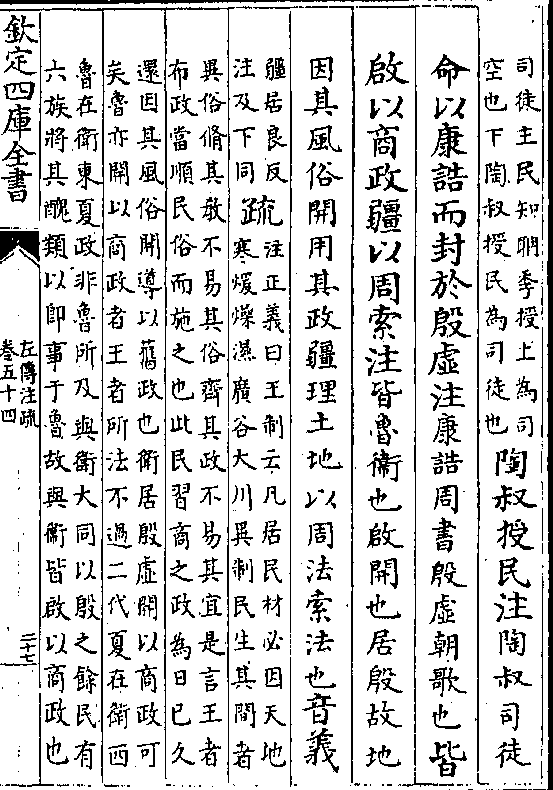 司徒主民知聃季授上為司
空也下陶叔授民為司徒也
陶叔授民注陶叔司徒
命以康誥而封於殷虛注康誥周書殷虛朝歌也皆
啟以商政疆以周索注皆魯衞也啟開也居殷故地
因其風俗開用其政疆理土地以周法索法也音義
疆居良反
注及下同
疏
注正義曰王制云凡居民材必因天地
寒煖燥濕廣谷大川異制民生其間者
異俗脩其敎不易其俗齊其政不易其宜是言王者
布政當順民俗而施之也此民習商之政為日已久
還因其風俗開導以舊政也衞居殷虛開以商政可
矣魯亦開以商政者王者所法不過二代夏在衞西
魯在衞東夏政非魯所及與衞大同以殷之餘民有
六族將其醜類以即事于魯故與衞皆啟以商政也
欽定四庫全書
左傳注疏
卷五十四
二十七